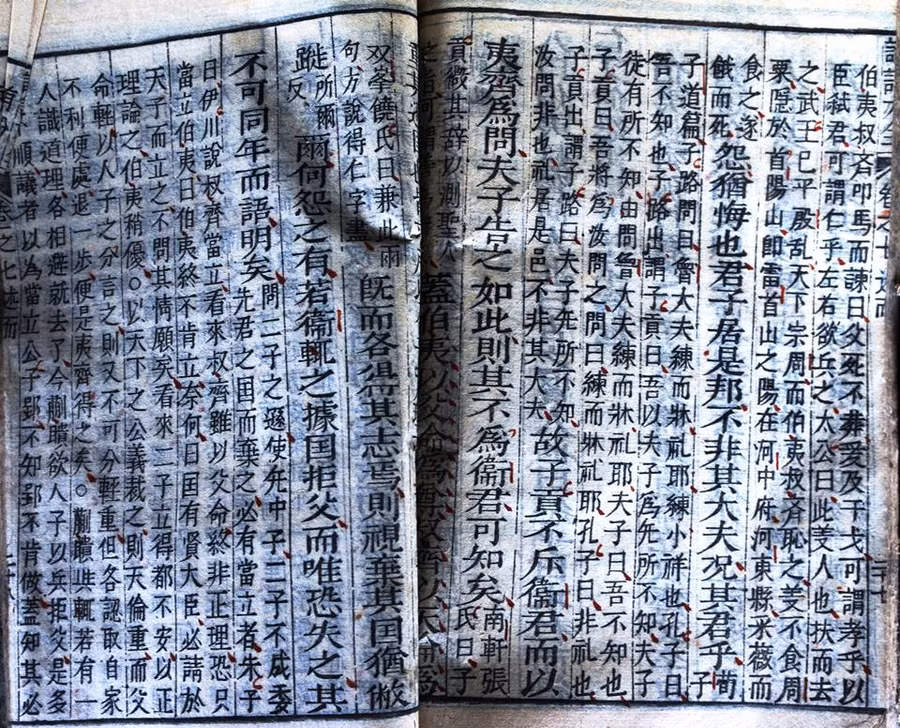 伯夷叔斉叩馬而諫曰父死不葬爰及干戈可謂孝乎以
臣弑君可謂仁乎左右欲兵之太公曰此義人也扶而去
之武王已平殷乱天下宗周而伯夷叔斉恥之義不食周
粟隱於首陽山即雷首山之陽在河中府河東縣采薇而
食之遂
餓而死怨猶悔也君子居是邦不非其大夫况其君乎荀
子
子道篇子路問曰魯大夫練而牀礼耶練小祥也孔子曰
吾不知也子路出謂子貢曰吾以夫子爲无所不知夫子
徒有所不知由問魯大夫練而牀礼耶夫子曰吾不知也
子貢曰吾将爲汝問之問曰練而牀礼耶孔子曰非礼也
子貢出謂子路曰夫子无所不知
汝問非也礼居是邑不非其大夫故子貢不斥衞君而以
夷齊爲問夫子告之如此則其不爲衞君可知矣南軒張
氏曰子
貢微其辞以測聖人
蓋伯夷以父命爲尊叔斉以天倫爲
双峯饒氏曰兼此兩
句方說得仁字盡既而各得其志焉則視棄其国猶敝
蹝所爾
反爾何怨之有若衞輒之據国拒父而唯恐失之其
不可同年而語明矣問二子之遜使无中子二子不成委
先君之国而棄之必有當立者朱子
曰伊川說叔齊當立看來叔齊雖以父命終非正理恐只
當立伯夷曰伯夷終不肯立奈何曰国有賢大臣必請於
天子而立之不問其情願矣看來二子立得都不安以正
理論之伯夷稍優○以天下之公義裁之則天倫重而父
命輕以人子之分言之則又不可分輕重但各認取自家
不利便處退一歩便是夷齊得之矣○蒯聵与輒若有一
人識道理各相避就去了今蒯聵欲入子以兵拒父是多
不順議者以為當立公子郢不知郢不肯做蓋知其必